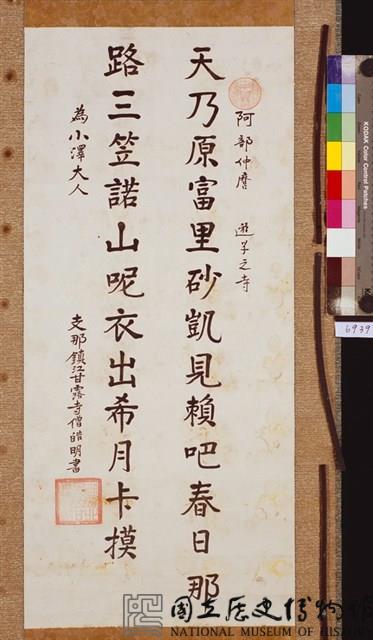 阿部仲麿 遊学之寺
天乃原富里砂凱見賴吧春日那
路三笠諾山呢衣出希月卡摸
為小澤大人
支那鎮江甘露寺僧皓明書
KODAK Color Control Patches
6939
國立歷史博物館
NATIONAL MUSEUM OF HIS